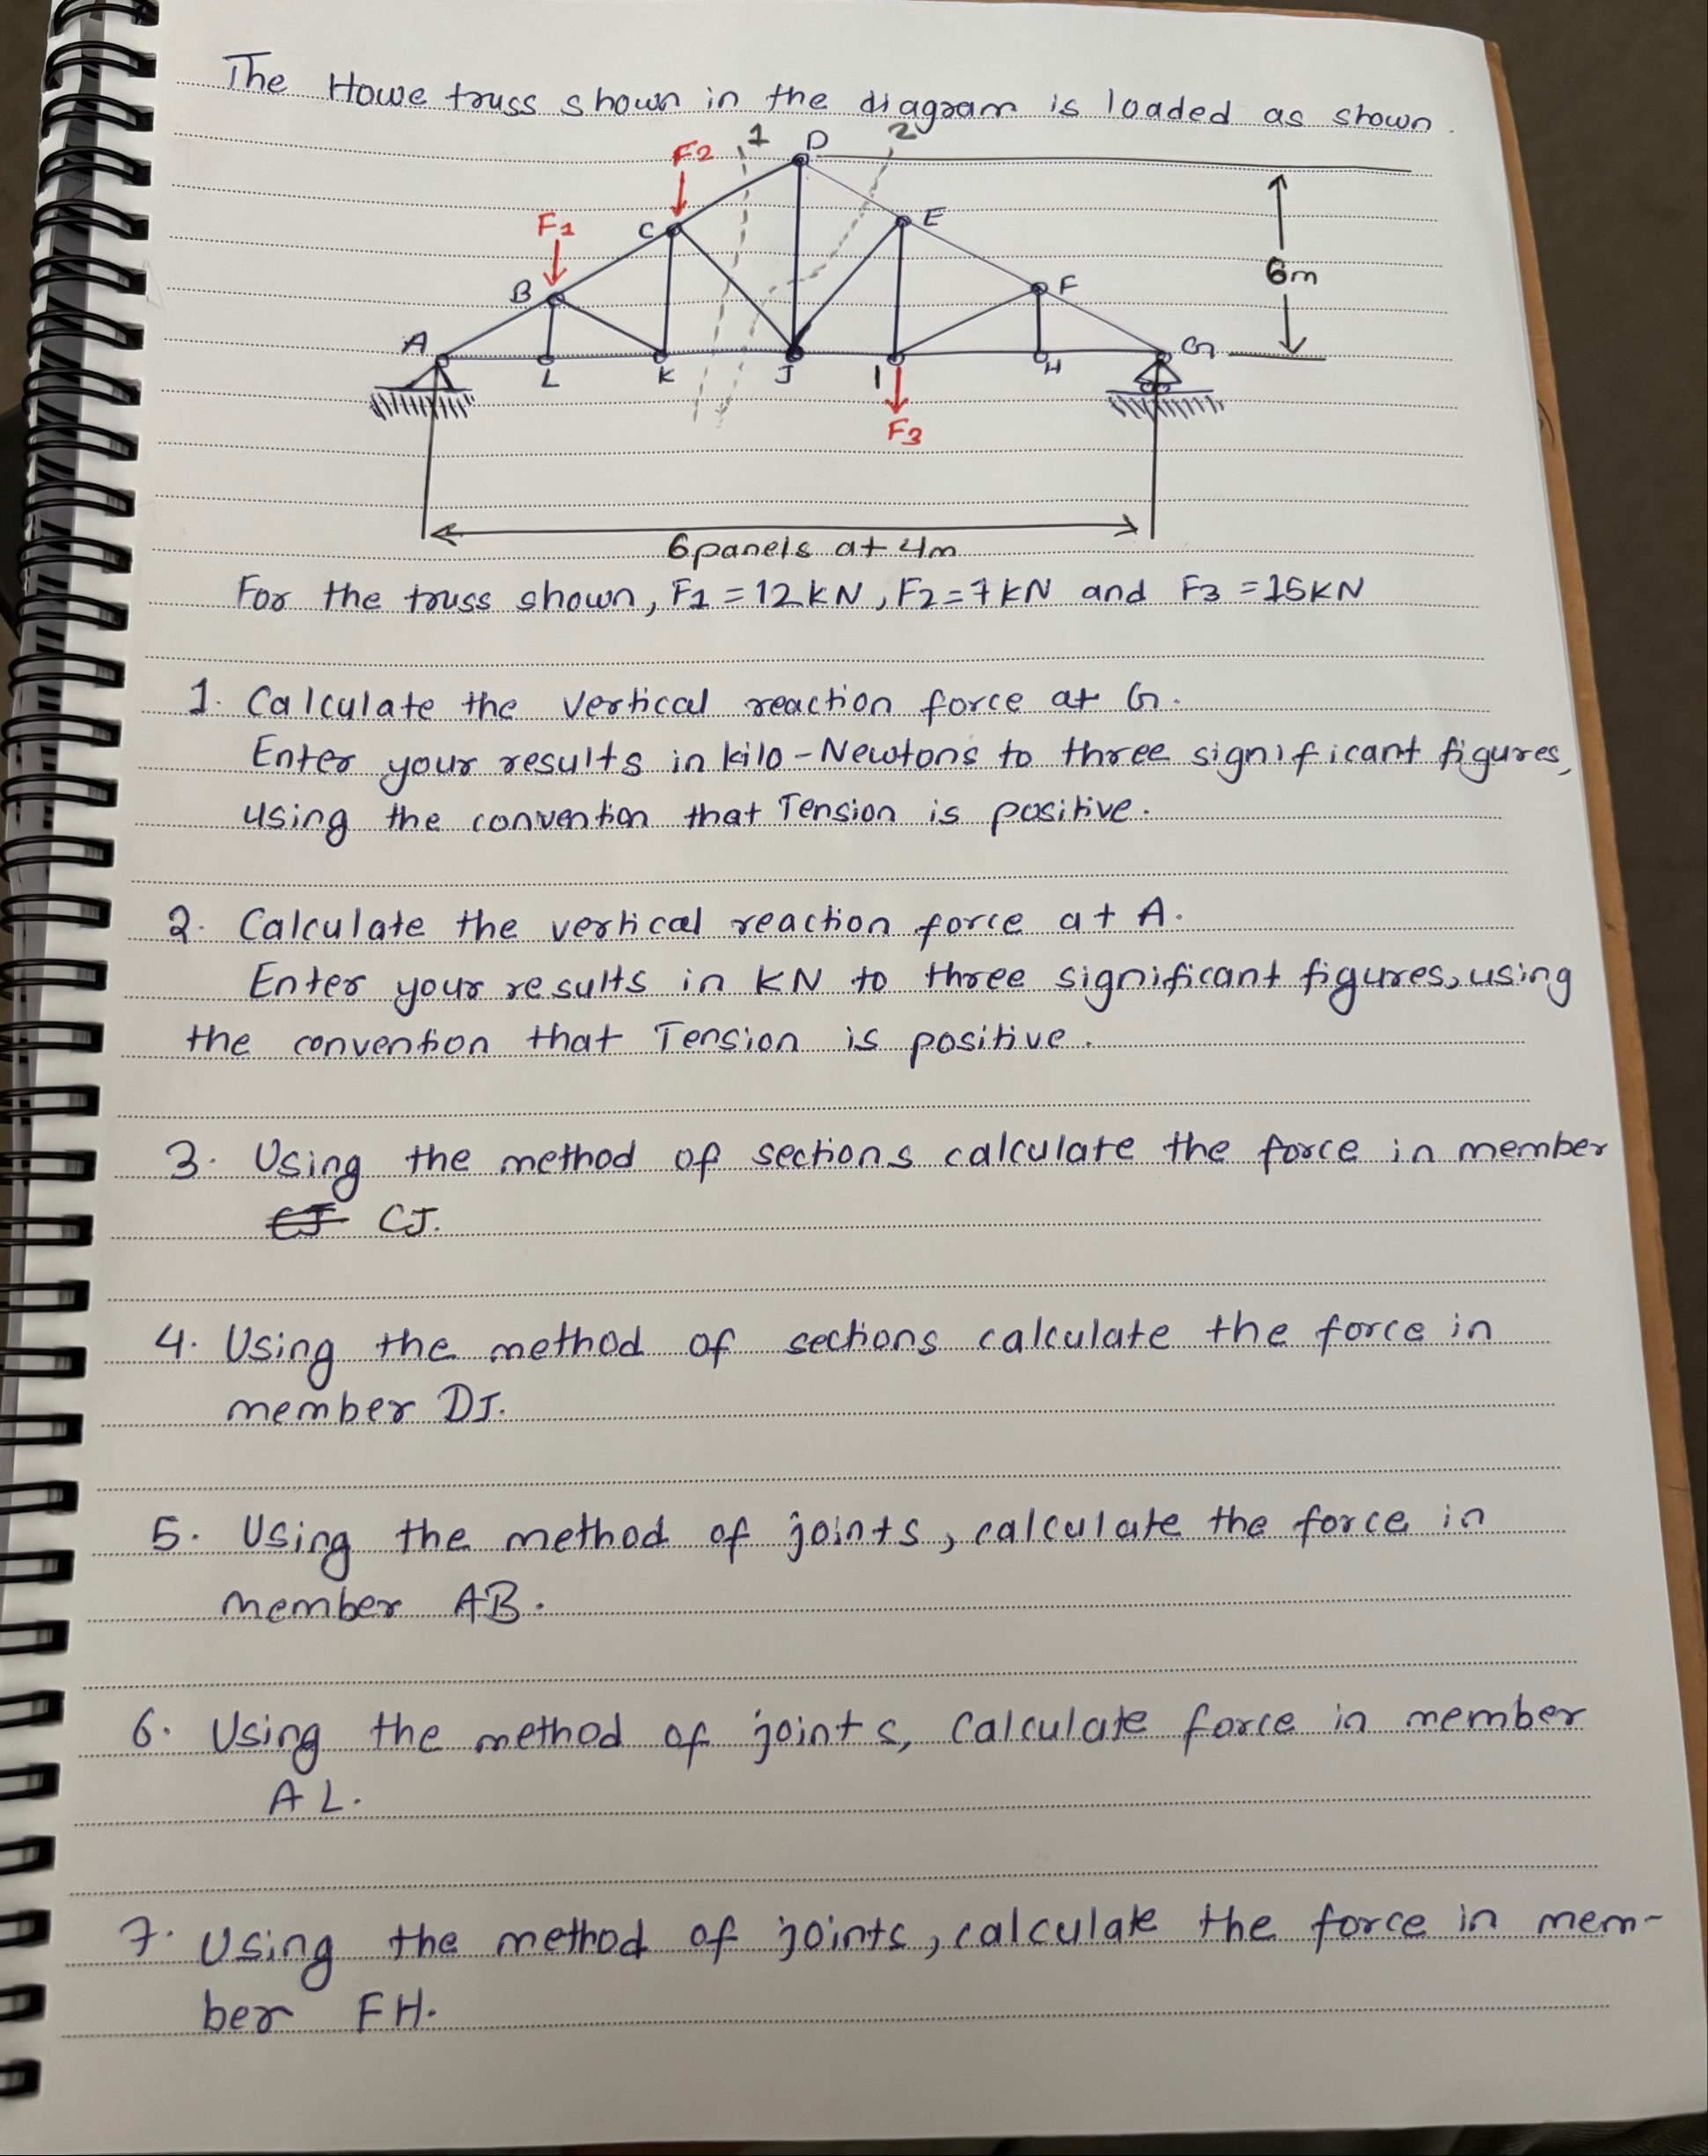 The Howe truss shown in the diagram is loaded as shown.
1 D 2
F2
C E
F1
B F
6m
A G
L K J I H
F3
6 panels at 4m
For the truss shown, F1 = 12 kN, F2 = 7 kN and F3 = 15KN
1. Calculate the vertical reaction force at G.
Enter your results in kilo-Newtons to three significant figures,
using the convention that Tension is positive.
2. Calculate the vertical reaction force at A.
Enter your results in KN to three significant figures, using
the convention that Tension is positive.
3. Using the method of sections calculate the force in member
CJ CJ.
4. Using the method of sections calculate the force in
member DJ.
5. Using the method of joints, calculate the force in
member AB.
6. Using the method of joints, calculate force in member
AL.
7. Using the method of joints, calculate the force in mem-
ber FH.